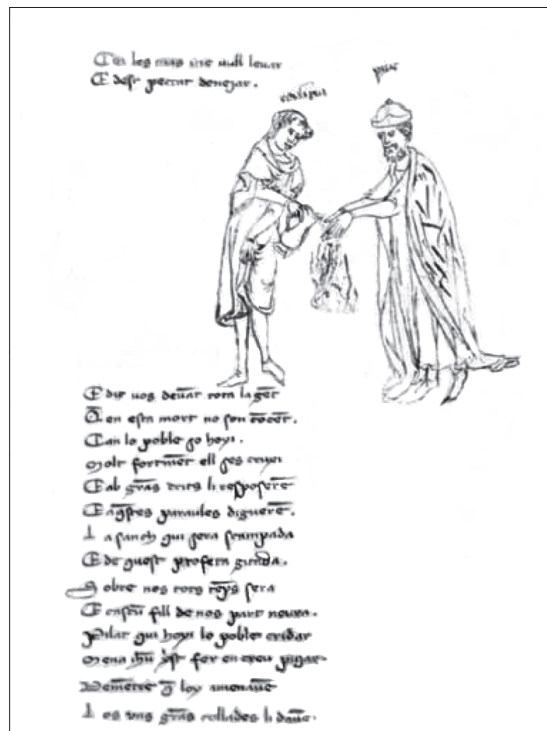 les mas me vull leuar
E dest peccat denejar.
E dir vos deua̅t tota la ge̅t
Q̅ en esta mort no son
Can lo poble ço hoyi.
Molt fortme̅t ell ses
E ab gra̅s crits li resposere̅
E aq̅stes paraules diguere̅.
La sanch qui sera scampada
E de quest profeta gitada.
Sobre nos tots sera
E cascu̅ fill de nos part neura.
Pilat qui hoyi lo poble cridar
Mena ihu̅ fer en creu pujar.
Deme̅tre q̅ loy amenaue̅
Los vns gra̅s collades li daue̅.